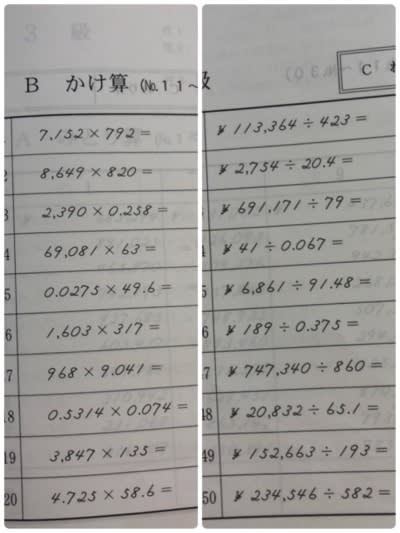 3 級
B かけ算 (No.11～
1 7,152 × 792 =
2 8,649 × 820 =
3 2,390 × 0.258 =
4 69,081 × 63 =
5 0.0275 × 49.6 =
6 1,603 × 317 =
7 968 × 9.041 =
8 0.5314 × 0.074 =
19 3,847 × 135 =
20 4.725 × 58.6 =
級
C わ
¥ 113,364 ÷ 423 =
¥ 2,754 ÷ 20.4 =
¥ 691,171 ÷ 79 =
¥ 41 ÷ 0.067 =
5 ¥ 6,861 ÷ 91.48 =
6 ¥ 189 ÷ 0.375 =
47 ¥ 747,340 ÷ 860 =
48 ¥ 20,832 ÷ 65.1 =
49 ¥ 152,663 ÷ 193 =
50 ¥ 234,546 ÷ 582 =